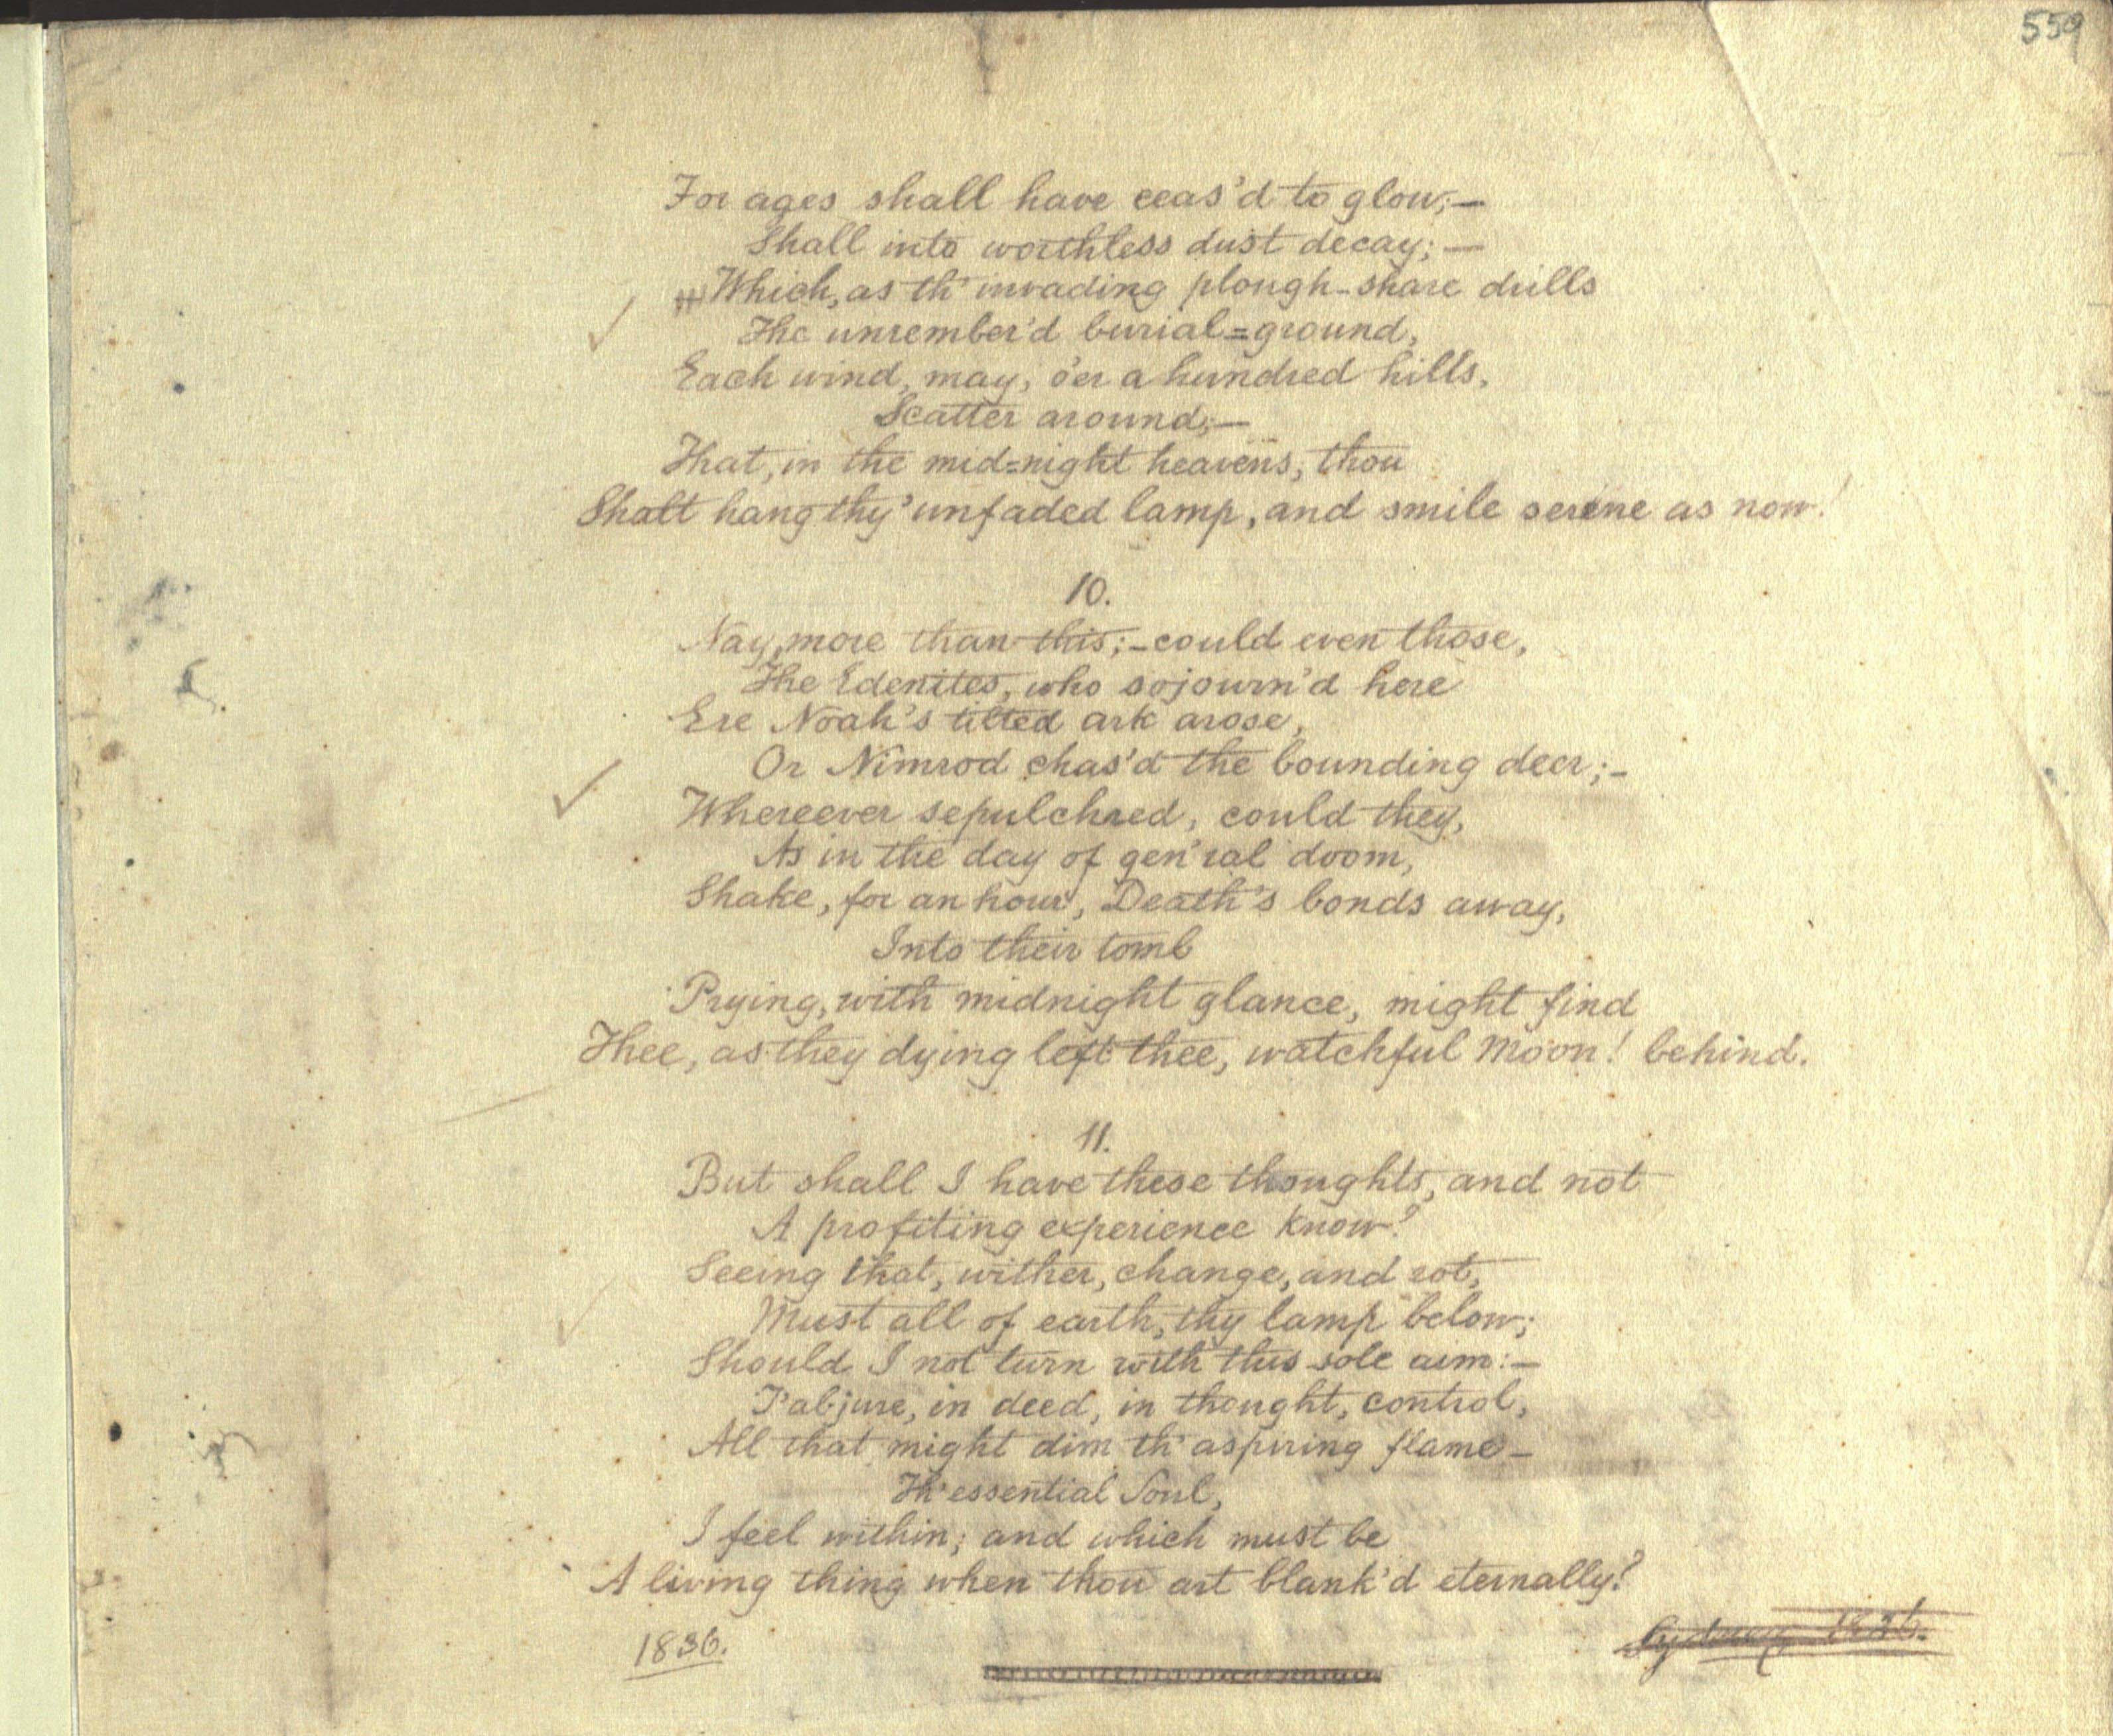 559
For ages shall have ceas'd to glow;—
Shall into worthless dust decay;—
Which, as th' invading plough-share drills
The unrember'd burial=ground,
Each wind, may, o'er a hundred hills,
Scatter around;—
That, in the mid=night heavens, thou
Shalt hang thy unfaded lamp, and smile serene as now!
10.
Nay, more than this;—could even those,
The Edenites, who sojourn'd here
Ere Noah's tilted ark arose,
Or Nimrod chas'd the bounding deer;—
Whereever sepulchred, could they,
As in the day of gen'ral doom,
Shake, for an hour, Death's bonds away,
Into their tomb
Prying, with midnight glance, might find
Thee, as they dying left thee, watchful Moon! behind.
11.
But shall I have these thoughts, and not
A profiting experience know?
Seeing that, wither, change, and rot,
Must all of earth, thy lamp below;
Should I not turn with this sole aim:—
T'abjure, in deed, in thought, control,
All that might dim th' aspiring flame—
Th' essential Soul,
I feel within; and which must be
A living thing when thou art blank'd eternally?
Sydney 1836.
1836.